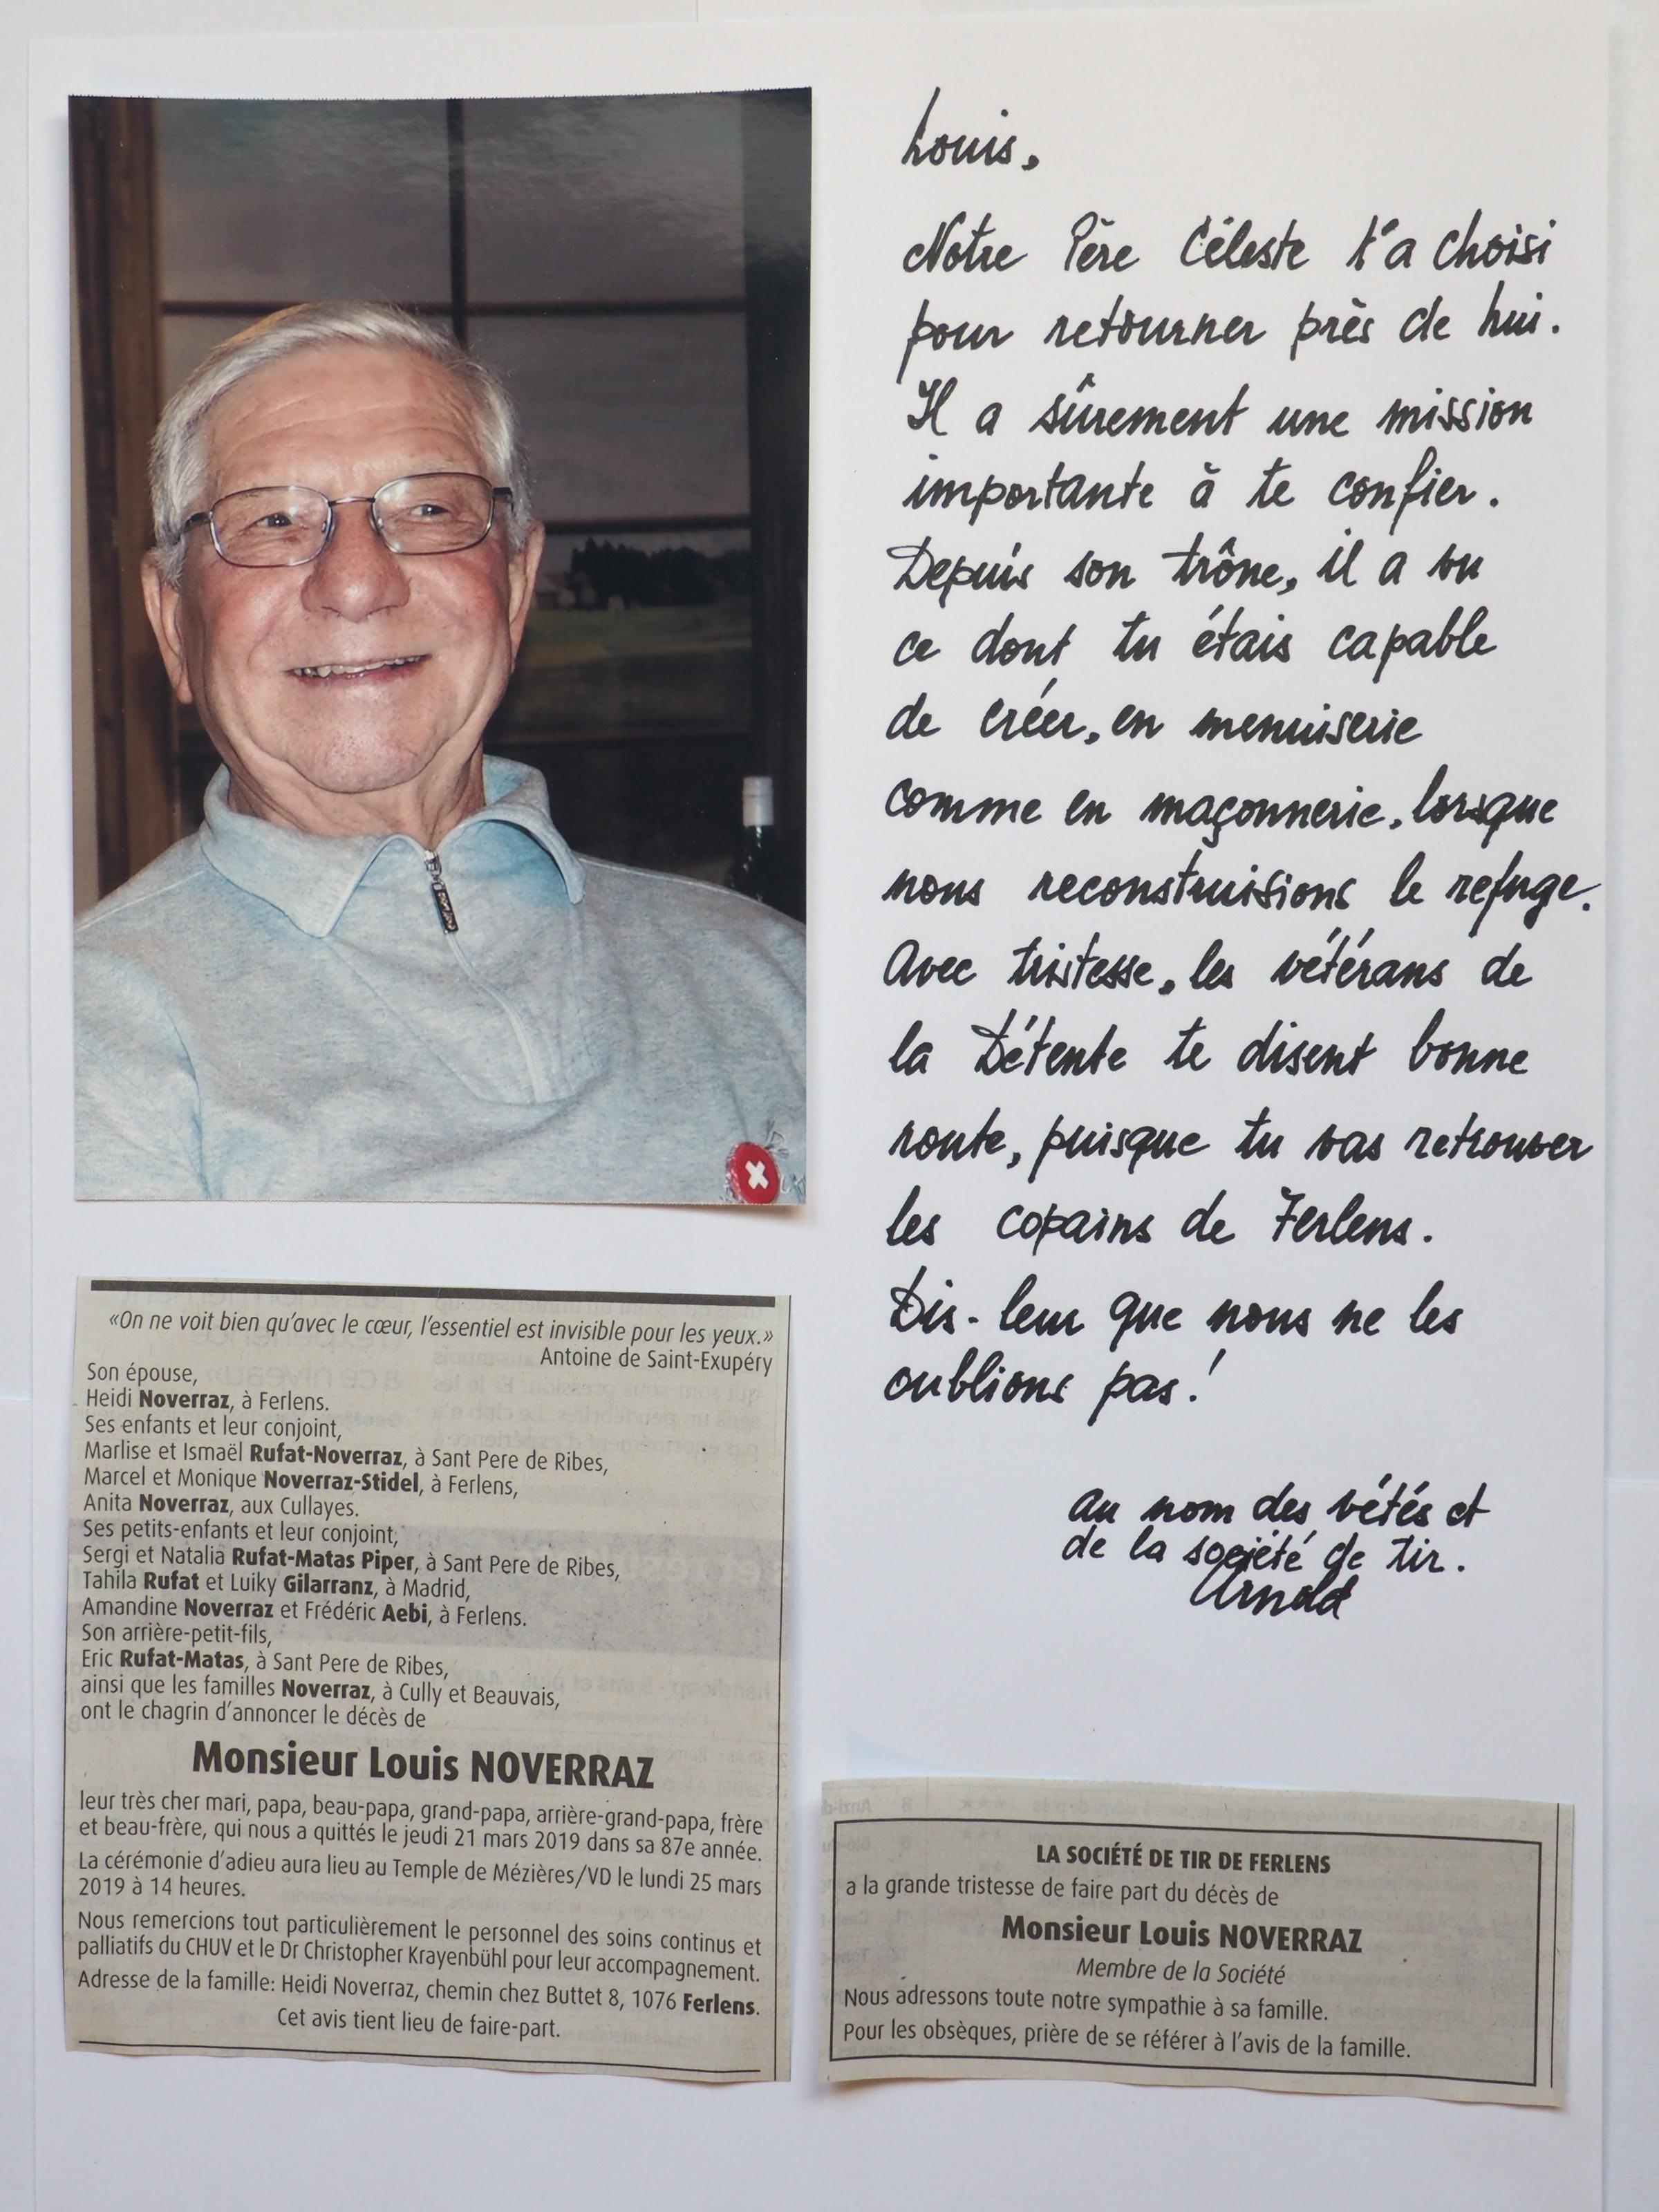 Louis,
Notre Père Céleste t'a choisi
pour retourner près de Lui.
Il a sûrement une mission
importante à te confier.
Depuis son trône, il a vu
ce dont tu étais capable
de créer, en menuiserie
comme en maçonnerie, lorsque
nous reconstruisions le refuge.
Avec tristesse, les vétérans de
la Détente te disent bonne
route, puisque tu vas retrouver
les copains de Ferlens.
Dis-leur que nous ne les
oublions pas!
au nom des vétés et
de la société de tir.
Arnold
«On ne voit bien qu'avec le cœur, l'essentiel est invisible pour les yeux.»
Antoine de Saint-Exupéry
Son épouse,
Heidi Noverraz, à Ferlens.
Ses enfants et leur conjoint,
Marlise et Ismaël Rufat-Noverraz, à Sant Pere de Ribes,
Marcel et Monique Noverraz-Stidel, à Ferlens,
Anita Noverraz, aux Cullayes.
Ses petits-enfants et leur conjoint,
Sergi et Natalia Rufat-Matas Piper, à Sant Pere de Ribes,
Tahila Rufat et Luiky Gilarranz, à Madrid,
Amandine Noverraz et Frédéric Aebi, à Ferlens.
Son arrière-petit-fils,
Eric Rufat-Matas, à Sant Pere de Ribes,
ainsi que les familles Noverraz, à Cully et Beauvais,
ont le chagrin d'annoncer le décès de
Monsieur Louis NOVERRAZ
leur très cher mari, papa, beau-papa, grand-papa, arrière-grand-papa, frère
et beau-frère, qui nous a quittés le jeudi 21 mars 2019 dans sa 87e année.
La cérémonie d'adieu aura lieu au Temple de Mézières/VD le lundi 25 mars
2019 à 14 heures.
Nous remercions tout particulièrement le personnel des soins continus et
palliatifs du CHUV et le Dr Christopher Krayenbühl pour leur accompagnement.
Adresse de la famille: Heidi Noverraz, chemin chez Buttet 8, 1076 Ferlens.
Cet avis tient lieu de faire-part.
LA SOCIÉTÉ DE TIR DE FERLENS
a la grande tristesse de faire part du décès de
Monsieur Louis NOVERRAZ
Membre de la Société
Nous adressons toute notre sympathie à sa famille.
Pour les obsèques, prière de se référer à l'avis de la famille.